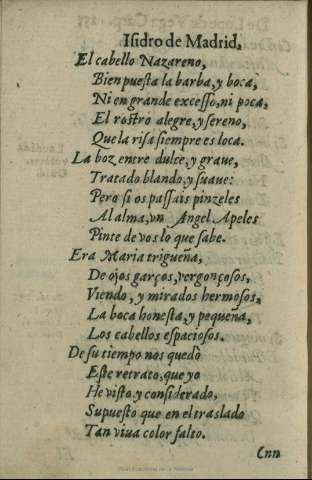 Isidro de Madrid,
El cabello Nazareno,
Bien puesta la barba, y boca,
Ni en grande excesso, ni poca,
El rostro alegre, y sereno,
Que la risa siempre es loca.
La boz entre dulce, y graue,
Tratado blando, y suaue:
Pero si os passais pinzeles
Al alma, vn Angel Apeles
Pinte de vos lo que sabe.
Era Maria trigueña,
De ojos garços, vergonçosos,
Viendo, y mirados hermosos,
La boca honesta, y pequeña,
Los cabellos espaciosos.
De su tiempo nos quedò
Este retrato, que yo
He visto, y considerado,
Supuesto que en el traslado
Tan viua color falto.
Cnn